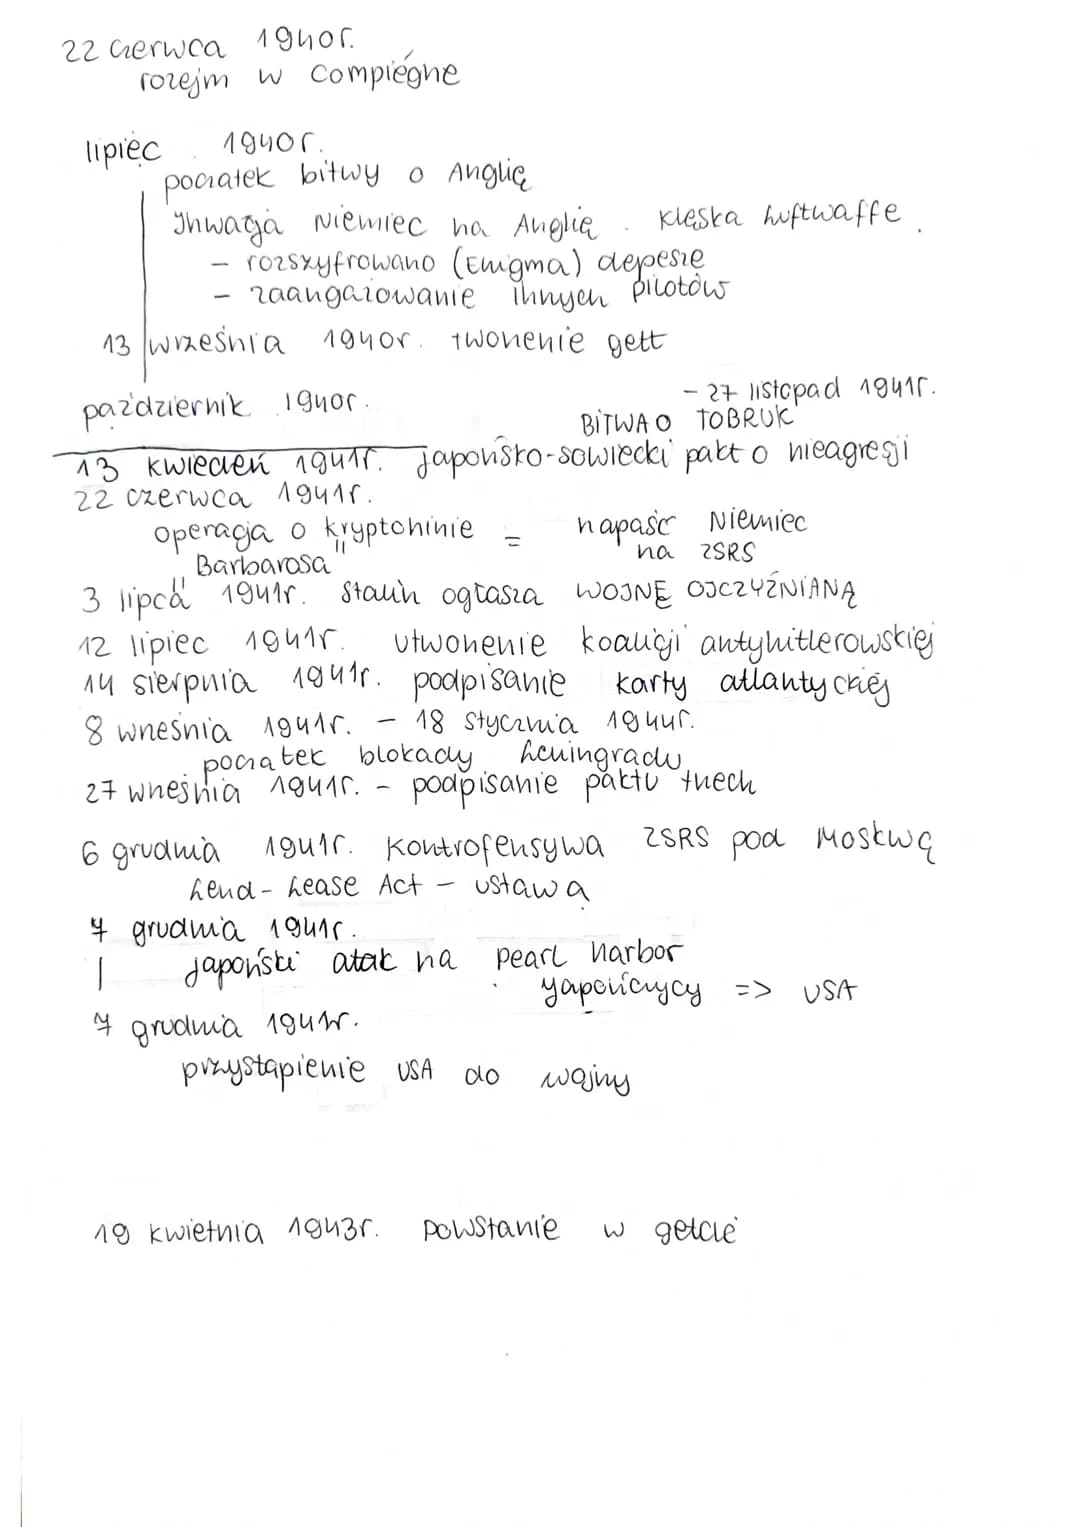 22 czerwca 1940r.
rozejm w Compiégne
lipiec 1940r.
początek bitwy o Anglię
Inwazja Niemiec na Anglię. Klęska Luftwaffe.
- rozszyfrowano (Enigma) depesze
- zaangażowanie innych pilotów
13 września 1940r. tworzenie gett
październik 1940r. - 27 listopad 1941r.
BITWA O TOBRUK
13 kwiecień 1941r. japońsko-sowiecki pakt o nieagresji
22 czerwca 1941r.
operacja o kryptoninie = napaść Niemiec
"Barbarosa" na ZSRS
3 lipca 1941r. Stalin ogłasza WOJNĘ OJCZYŹNIANĄ
12 lipiec 1941r. utworzenie koalicji antyhitlerowskiej
14 sierpnia 1941r. podpisanie karty atlantyckiej
8 września 1941r. - 18 stycznia 1944r.
początek blokady Leningradu
27 września 1941r. - podpisanie paktu trzech
6 grudnia 1941r. Kontrofensywa ZSRS pod Moskwą
Lend-Lease Act - ustawa
7 grudnia 1941r.
japoński atak na Pearl Harbor
Japończycy => USA
7 grudnia 1941r.
przystąpienie USA do wojny
19 kwietnia 1943r. powstanie w getcie